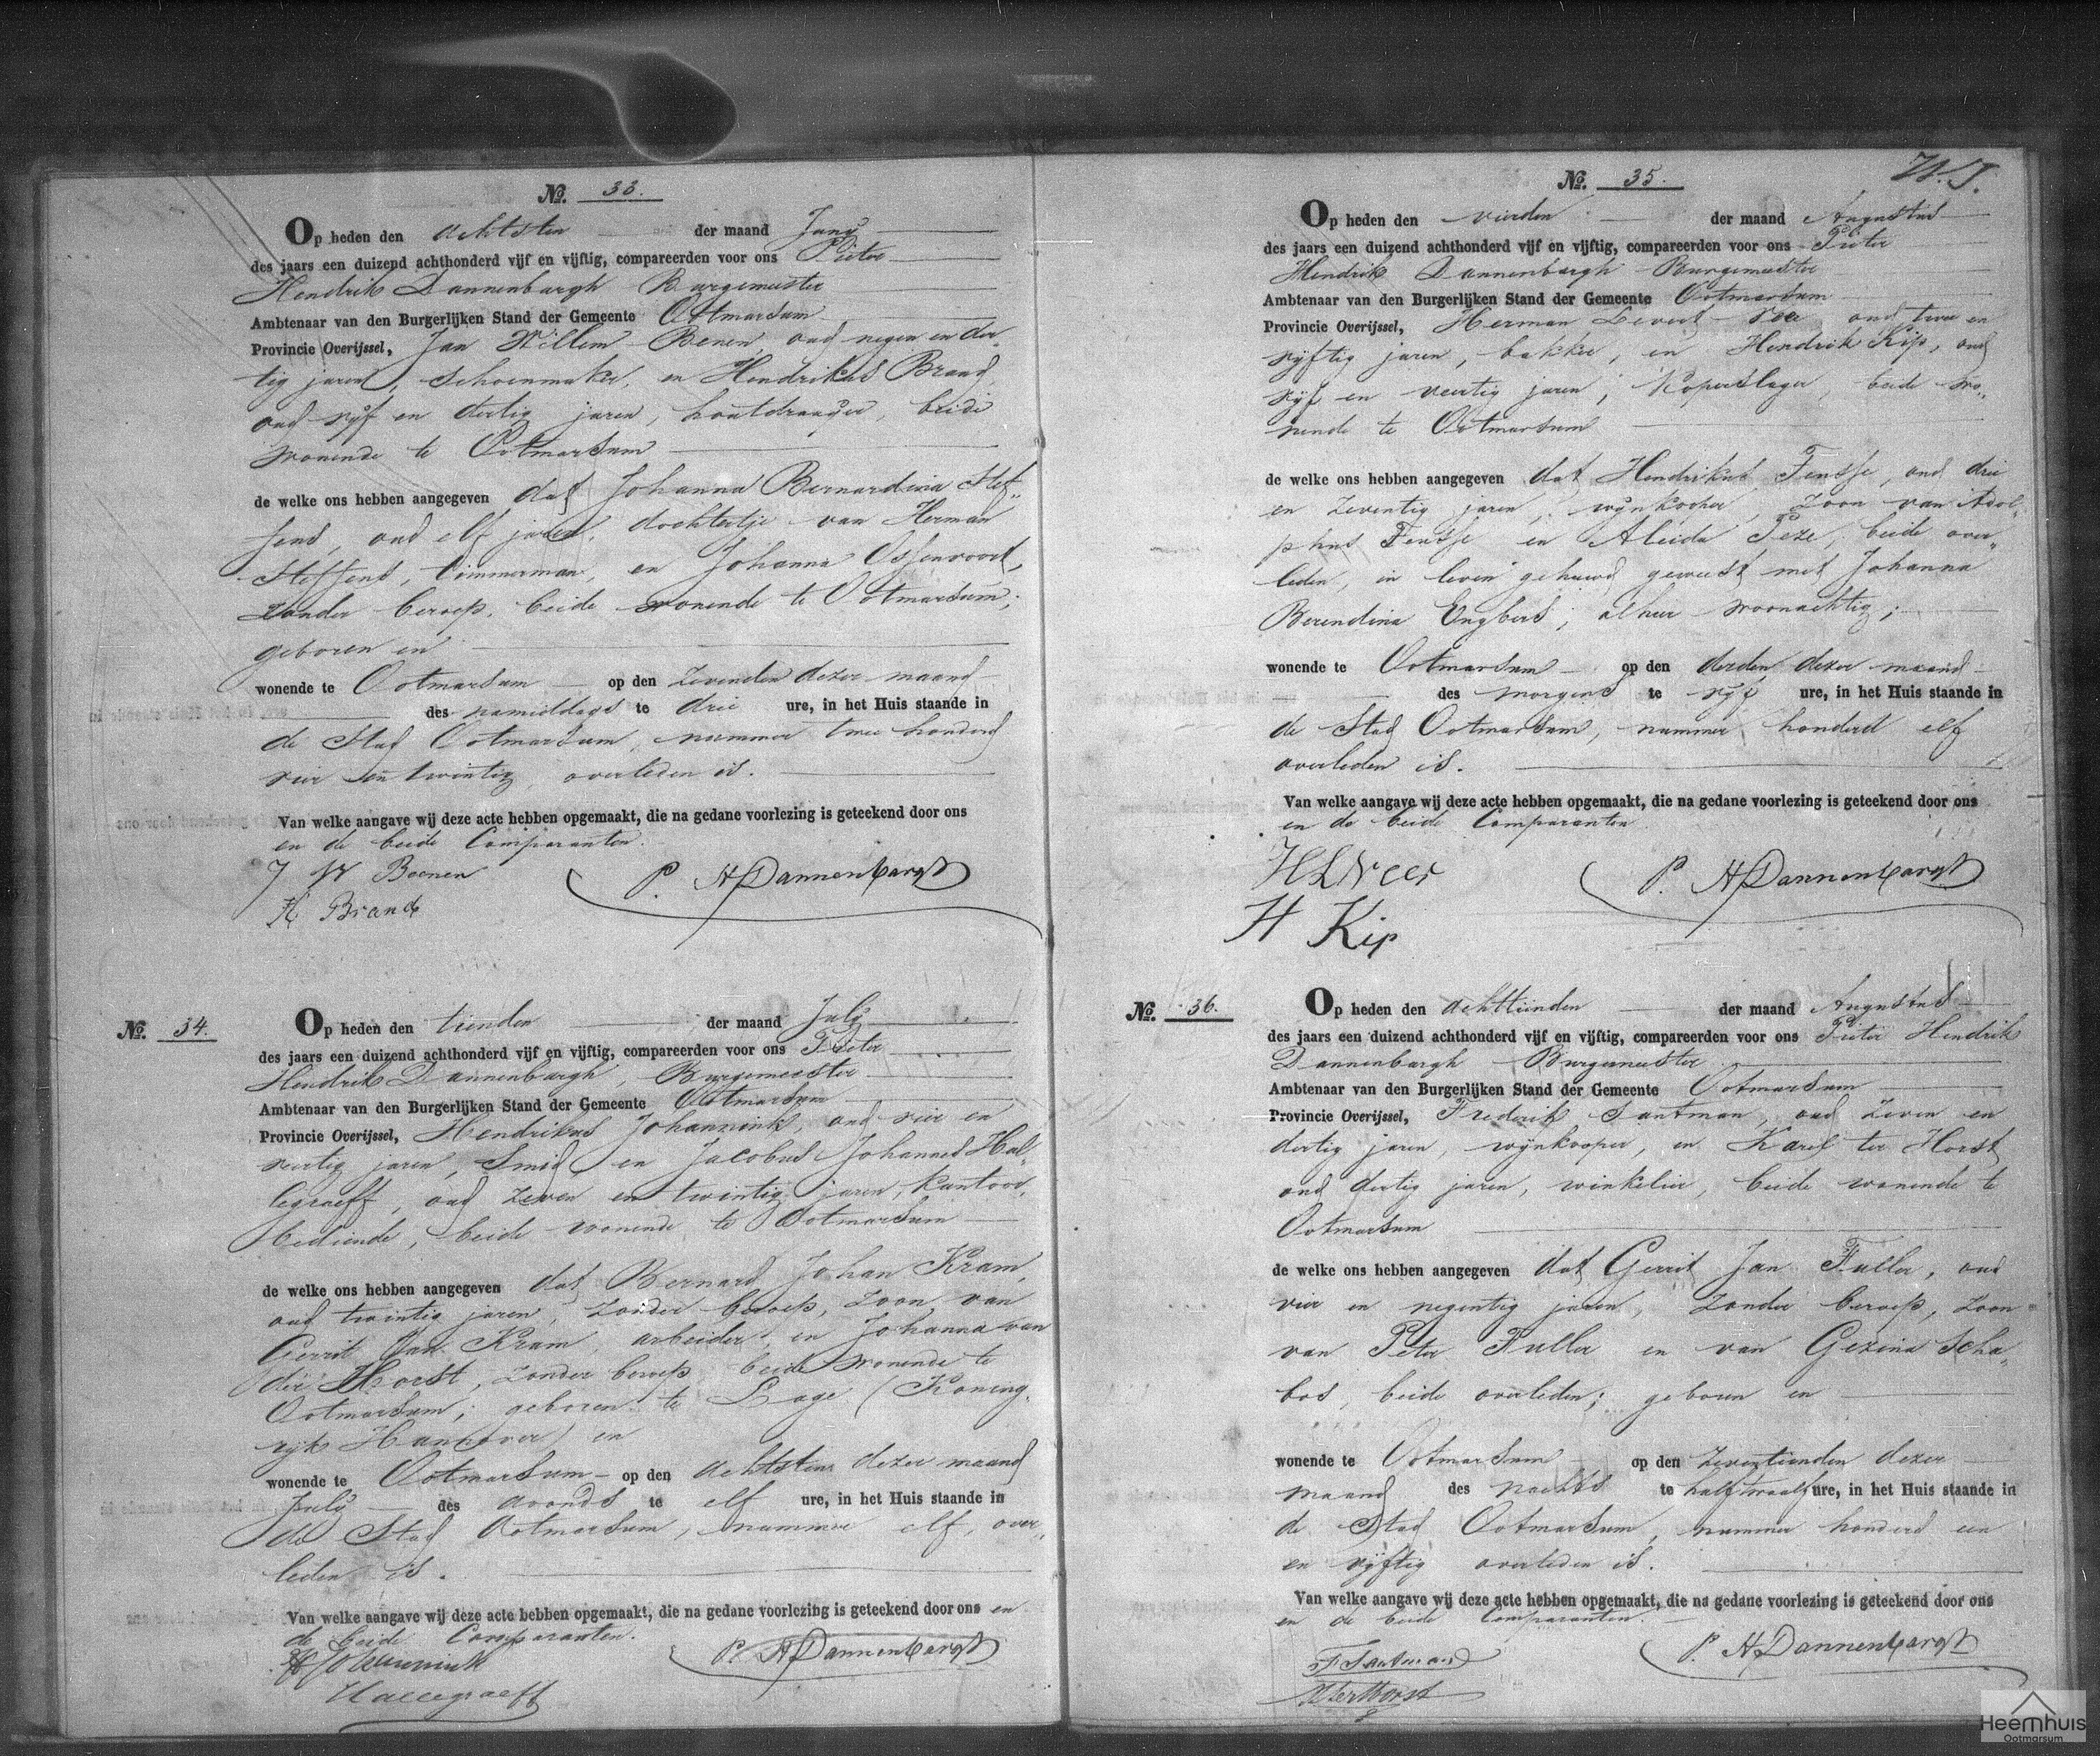 No. 33.
Op heden den achtsten der maand Juny
des jaars een duizend achthonderd vijf en vijftig, compareerden voor ons Pieter
Hendrik Dannenbargh Burgemeester
Ambtenaar van den Burgerlijken Stand der Gemeente Ootmarsum
Provincie Overijssel, Jan Willem Benen oud negen en der„
tig jaren, schoenmaker, en Hendrikus Brand,
oud vijf en dertig jaren, houtdraaijer, beide
wonende te Ootmarsum
de welke ons hebben aangegeven dat Johanna Bernardina Stef„
fens, oud elf jaren, dochtertje van Herman
Steffens, timmerman, en Johanna Ossenvoort,
zonder beroep, beide wonende te Ootmarsum;
geboren en
wonende te Ootmarsum op den zevenden dezer maand
des namiddags te drie ure, in het Huis staande in
de Stad Ootmarsum, nummer twee honderd
vier en twintig, overleden is.
Van welke aangave wij deze acte hebben opgemaakt, die na gedane voorlezing is geteekend door ons
en de beide Comparanten.
J W Beenen
P. H Dannenbargh
H Brand
No. 34.
Op heden den tienden der maand July
des jaars een duizend achthonderd vijf en vijftig, compareerden voor ons Pieter
Hendrik Dannenbargh, Burgemeester
Ambtenaar van den Burgerlijken Stand der Gemeente Ootmarsum
Provincie Overijssel, Hendrikus Johannink, oud vier en
veertig jaren, Smid en Jacobus Johannes Hal„
legraeff, oud zeven en twintig jaren, kantoor„
bediende, beide wonende te Ootmarsum
de welke ons hebben aangegeven dat Bernard Johan Kram,
oud twintig jaren, zonder beroep, zoon van
Gerrit Jan Kram, arbeider, en Johanna van
der Horst, zonder beroep beide wonende te
Ootmarsum; geboren te Lage (Koning„
rijk Hannover) en
wonende te Ootmarsum op den achtsten dezer maand
July des avonds te elf ure, in het Huis staande in
de Stad Ootmarsum, nummer elf, over„
leden is.
Van welke aangave wij deze acte hebben opgemaakt, die na gedane voorlezing is geteekend door ons en
de beide Comparanten.
H Johannink
P. H Dannenbargh
Hallegraeff
No. 35.
Op heden den vierden der maand Augustus
des jaars een duizend achthonderd vijf en vijftig, compareerden voor ons Pieter
Hendrik Dannenbargh Burgemeester
Ambtenaar van den Burgerlijken Stand der Gemeente Ootmarsum
Provincie Overijssel, Herman Levert Veer oud twee en
vijftig jaren, bakker, en Hendrik Kip, oud
vijf en veertig jaren, Koperslager, beide wo„
nende te Ootmarsum
de welke ons hebben aangegeven dat Hendrikus Fensse, oud drie
en zeventig jaren, wijnkooper, zoon van Adol„
phus Fensse en Aleida Peze, beide over„
leden, in leven gehuwd geweest met Johanna
Berendina Engbers; alhier woonachtig;
wonende te Ootmarsum op den derden dezer maand
des morgens te vijf ure, in het Huis staande in
de Stad Ootmarsum, nummer honderd elf
overleden is.
Van welke aangave wij deze acte hebben opgemaakt, die na gedane voorlezing is geteekend door ons
en de beide Comparanten
H L Veer
P. H Dannenbargh
H Kip
No. 36.
Op heden den achttienden der maand Augustus
des jaars een duizend achthonderd vijf en vijftig, compareerden voor ons Pieter Hendrik
Dannenbargh Burgemeester
Ambtenaar van den Burgerlijken Stand der Gemeente Ootmarsum
Provincie Overijssel, Frederik Santman, oud zeven en
dertig jaren, wijnkooper, en Karel ter Horst
oud dertig jaren, winkelier, beide wonende te
Ootmarsum
de welke ons hebben aangegeven dat Gerrit Jan Fuller, oud
vier en negentig jaren, zonder beroep, zoon
van Peter Fuller en van Gezina Scha„
bos, beide overleden; geboren en
wonende te Ootmarsum op den zeventienden dezer
maand des nachts te half twaalf ure, in het Huis staande in
de Stad Ootmarsum, nummer honderd een
en vijftig overleden is.
Van welke aangave wij deze acte hebben opgemaakt, die na gedane voorlezing is geteekend door ons
en de beide Comparanten.
F Santman
P. H Dannenbargh
K ter Horst
Heemhuis
Ootmarsum